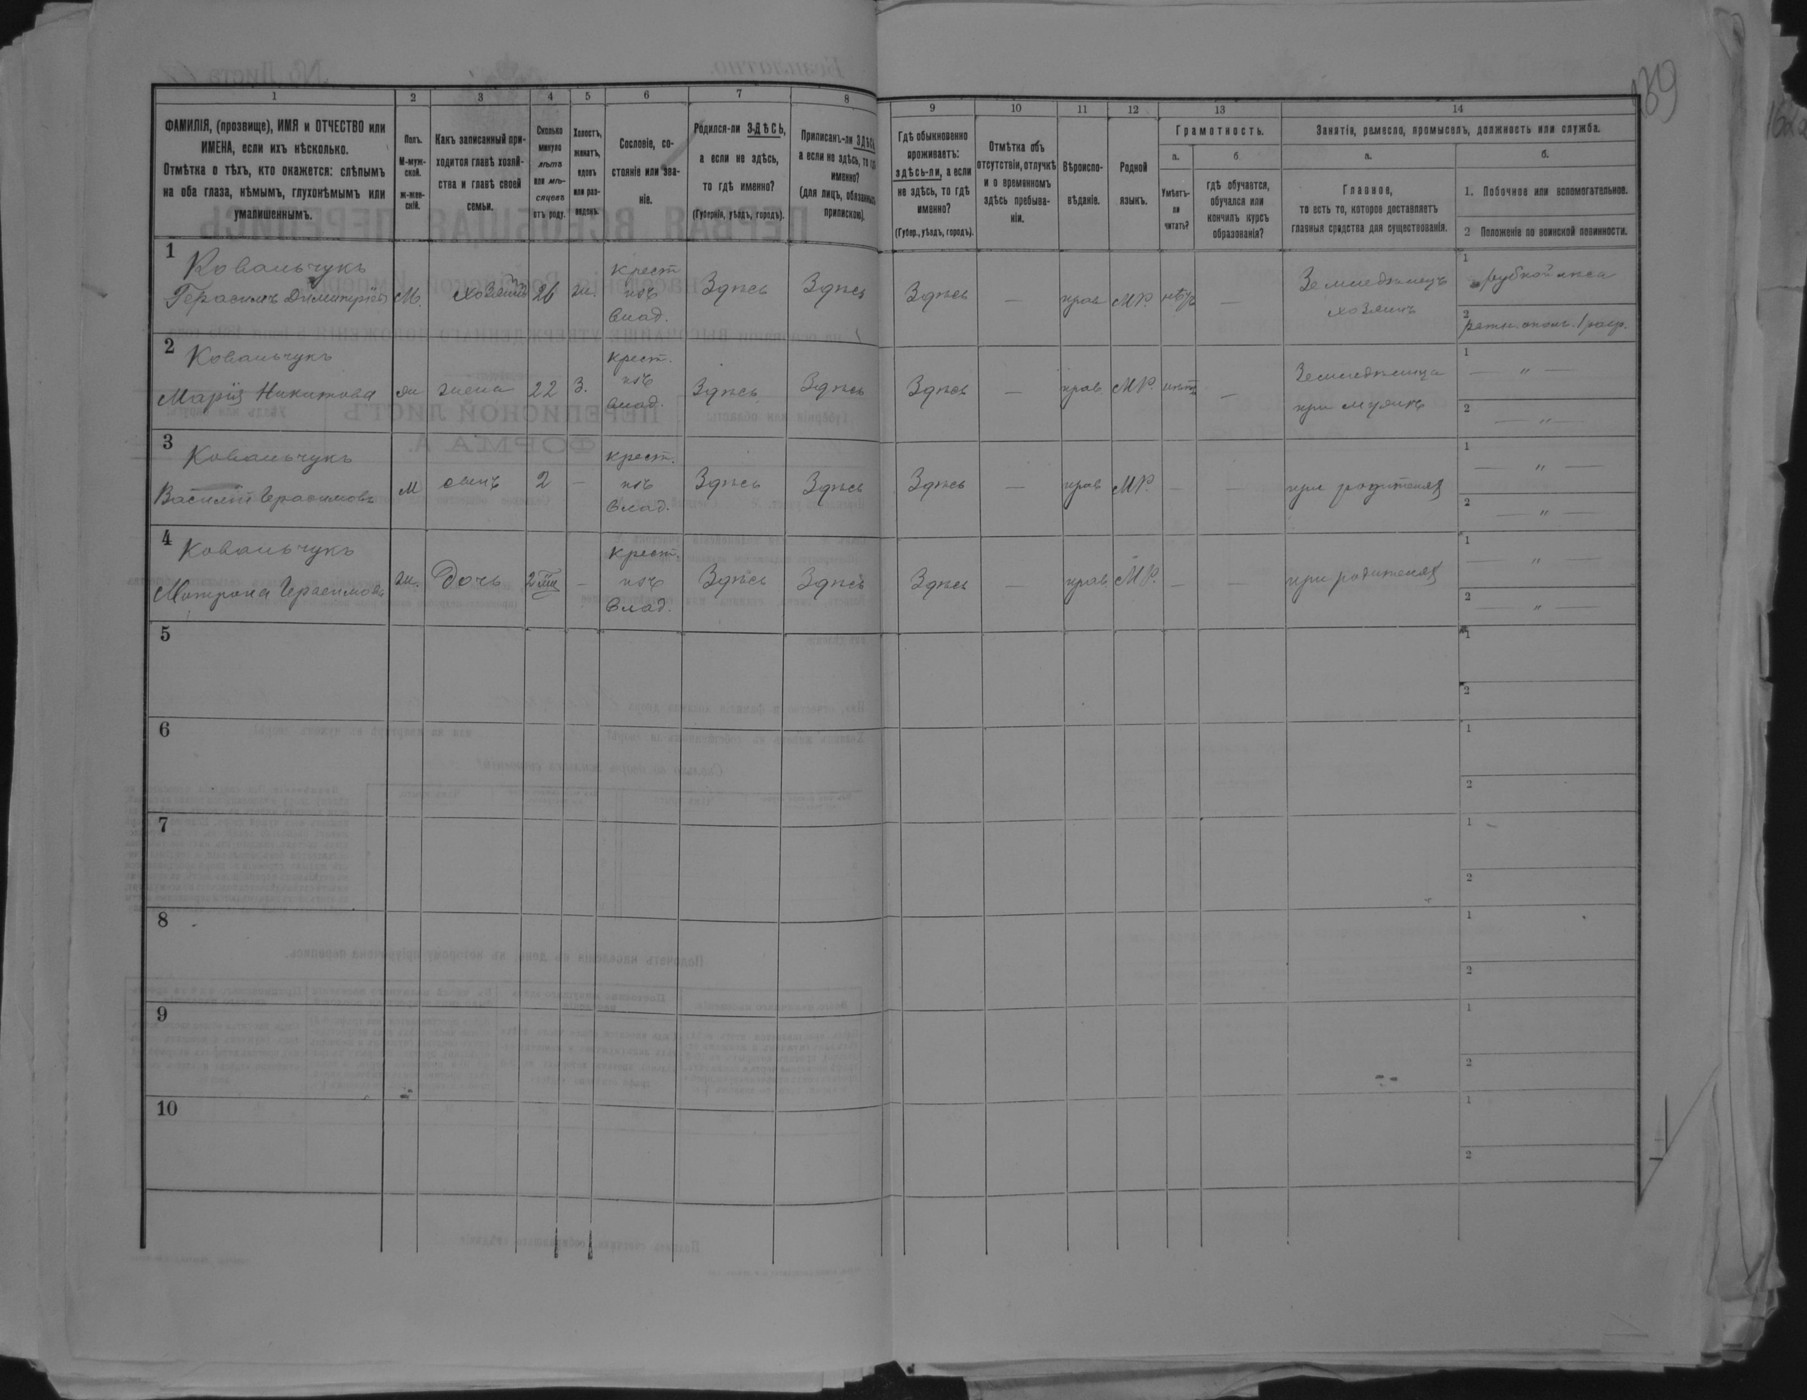 139
1 2 3 4 5 6 7 8 9 10 11 12 13 14
ФАМИЛІЯ, (прозвище), ИМЯ и ОТЧЕСТВО или
ИМЕНА, если ихъ нѣсколько.
Отмѣтка о тѣхъ, кто окажется: слѣпымъ
на оба глаза, нѣмымъ, глухонѣмымъ или
умалишеннымъ.
Полъ.
М-муж-
ской.
ж-жен-
скій.
Какъ записанный при-
ходится главѣ хозяй-
ства и главѣ своей
семьи.
Сколько
минуло
лѣтъ
или мѣ-
сяцевъ
отъ роду.
Холостъ,
женатъ,
вдовъ
или раз-
веденъ.
Сословіе, со-
стояніе или зва-
ніе.
Родился-ли ЗДѢСЬ,
а если не здѣсь,
то гдѣ именно?
(Губернія, уѣздъ, городъ).
Приписанъ-ли ЗДѢСЬ,
а если не здѣсь, то гдѣ
именно?
(для лицъ, обязанныхъ
припискою).
Гдѣ обыкновенно
проживаетъ:
здѣсь-ли, а если
не здѣсь, то гдѣ
именно?
(Губер., уѣздъ, городъ).
Отмѣтка объ
отсутствіи, отлучкѣ
и о временномъ
здѣсь пребыва-
ніи.
Вѣроиспо-
вѣданіе.
Родной
языкъ.
Грамотность.
а.
Умѣетъ-
ли
читать?
б.
гдѣ обучается,
обучался или
кончилъ курсъ
образованія?
Занятія, ремесло, промыселъ, должность или служба.
а.
Главное,
то есть то, которое доставляетъ
главныя средства для существованія.
б.
1. Побочное или вспомогательное.
2 Положеніе по воинской повинности.
1
Ковальчукъ
Герасимъ Димитріевъ
М. хозяинъ 26 ж.
крест
изъ
влад.
Здѣсь Здѣсь Здѣсь — прав МР. нѣтъ —
Земледѣлецъ
хозяинъ
1 рубкой лѣса
2
2
Ковальчукъ
Марія Никитова
ж жена 22 З.
крест.
изъ
влад.
Здѣсь Здѣсь Здѣсь — прав МР. нѣтъ —
Земледѣлица
при мужѣ
1 — " —
2 — " —
3
Ковальчукъ
Василій Герасимовъ
М сынъ 2 —
крест.
изъ
влад.
Здѣсь Здѣсь Здѣсь — прав МР. — —
при родителяхъ
1 — " —
2 — " —
4
Ковальчукъ
Матрона Герасимова
ж. дочь —
крест.
изъ
влад.
Здѣсь Здѣсь Здѣсь — прав МР. — —
при родителяхъ
1 — " —
2 — " —
5 1
2
6 1
2
7 1
2
8 1
2
9 1
2
10 1
2